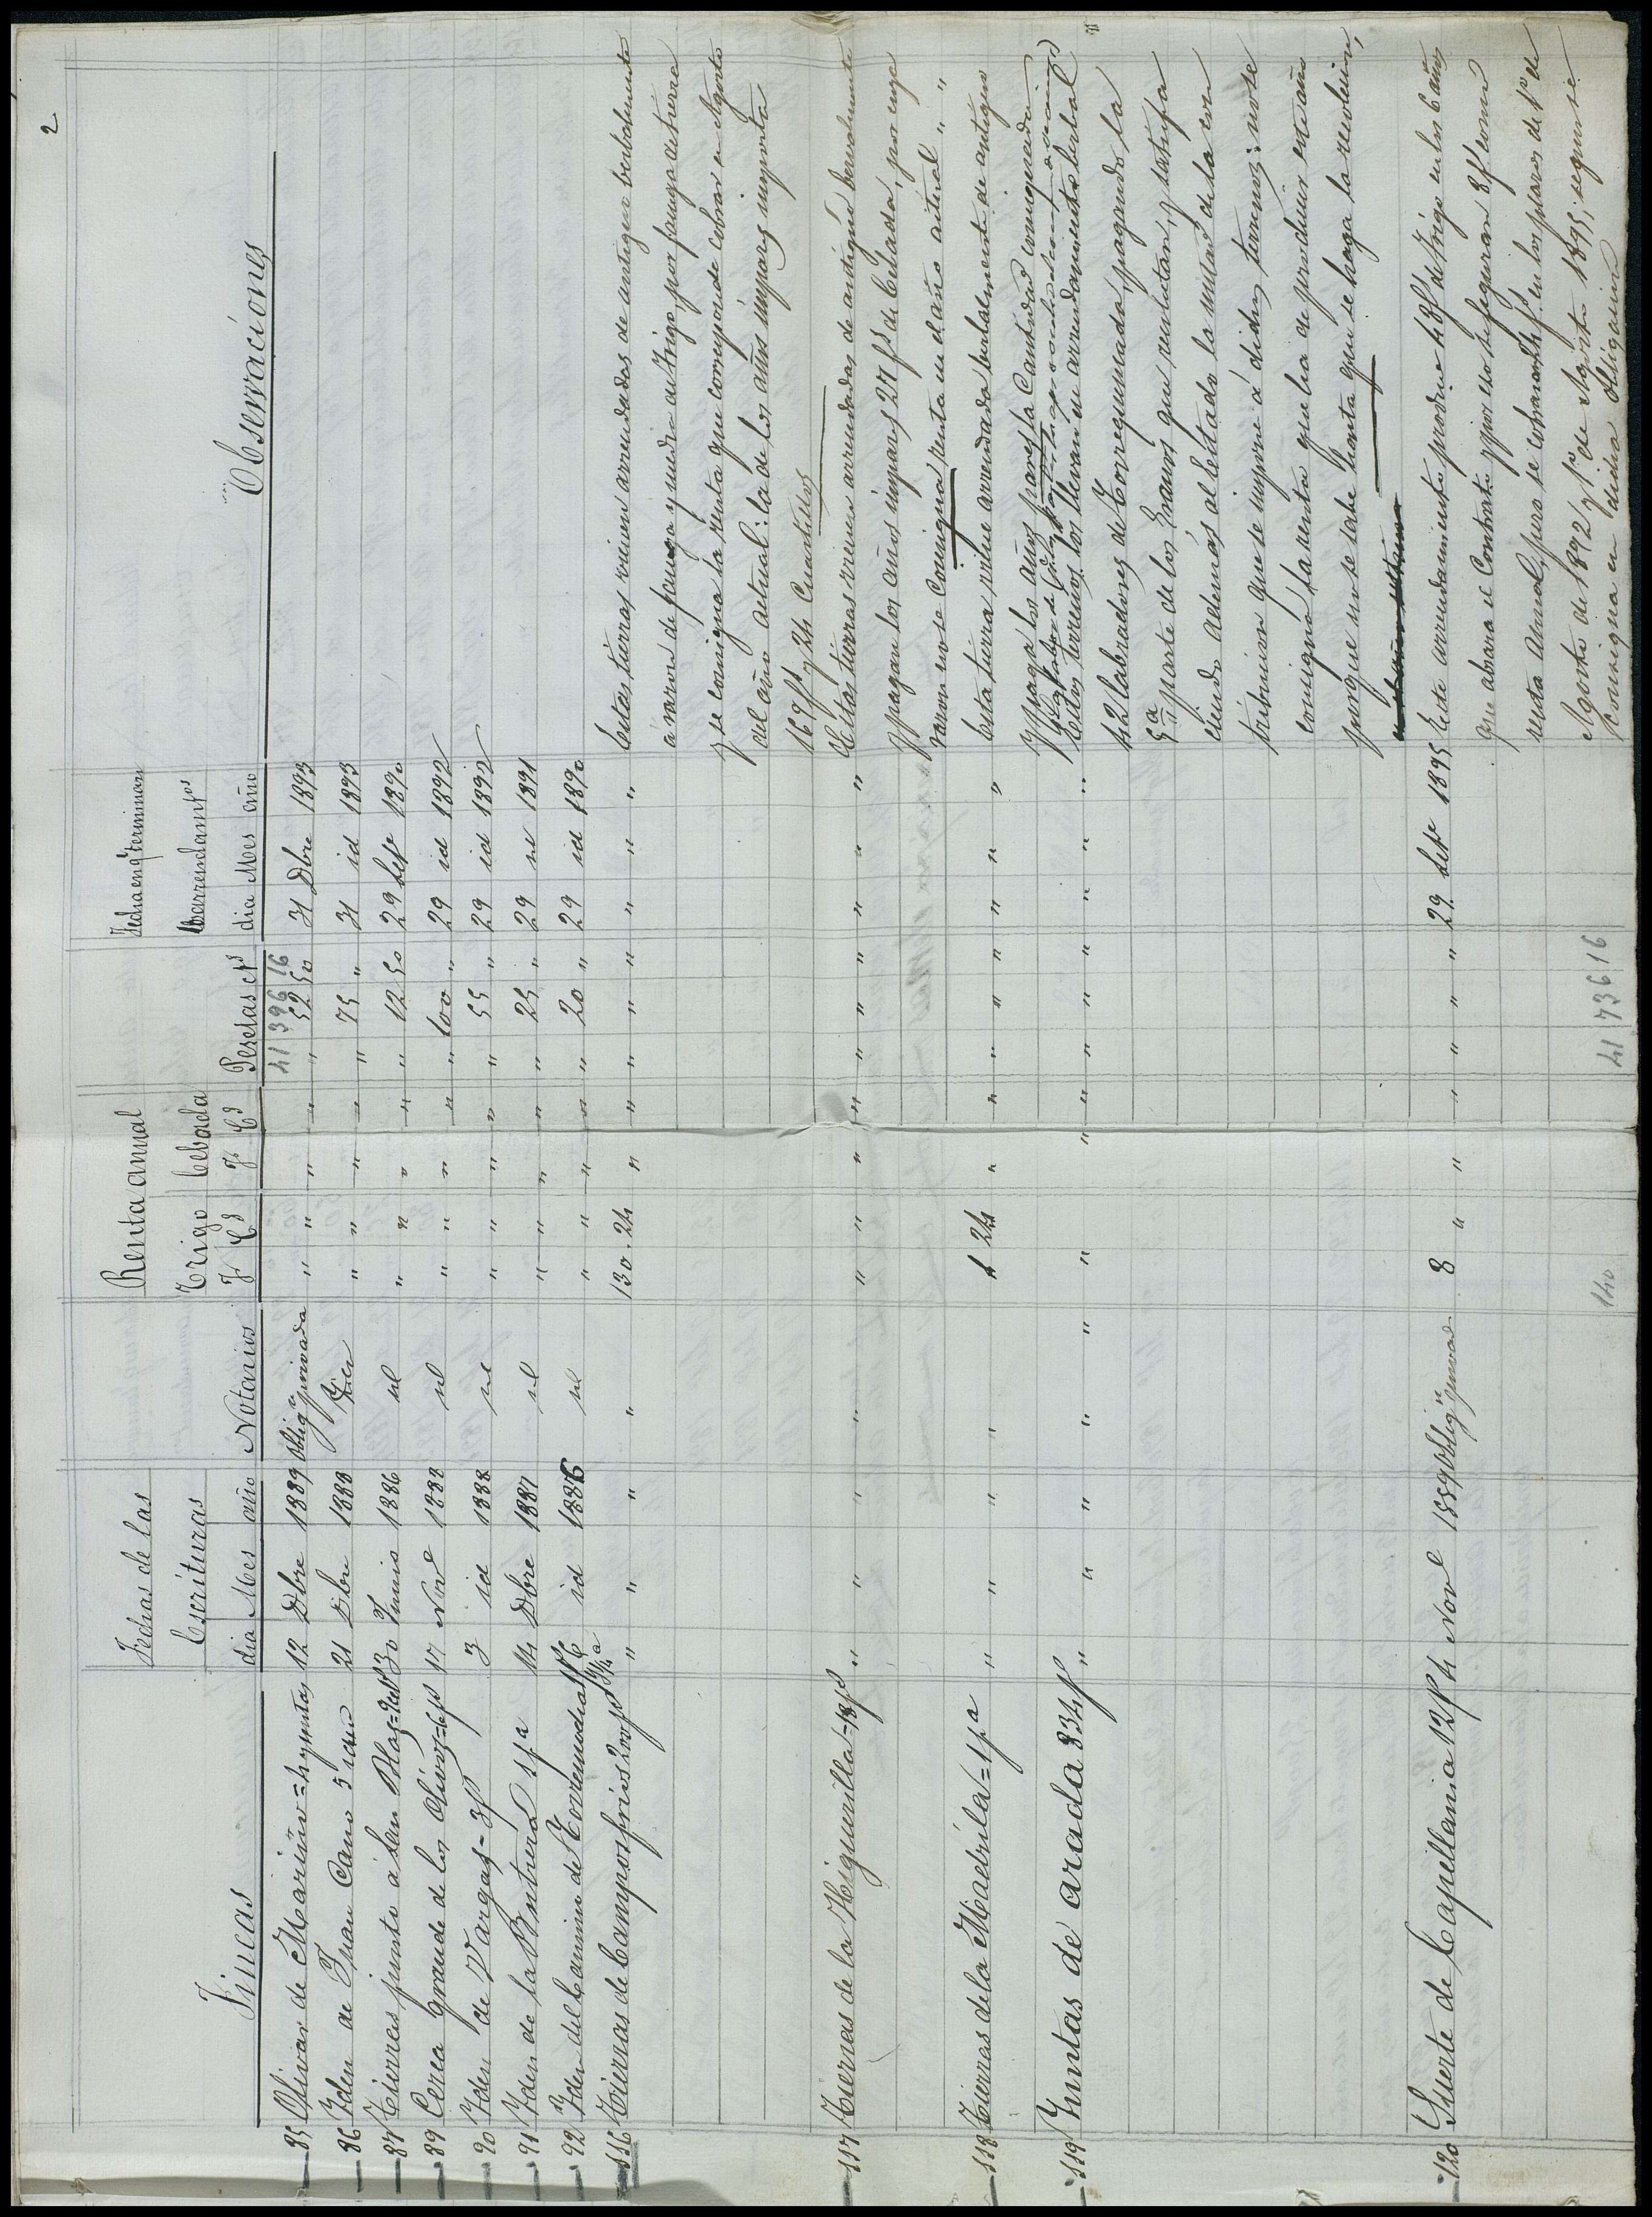 2
Fincas
Fechas de las
Escrituras
dia Mes año
Notarios
Renta anual
Trigo Cebada
F. C.s F. C.s
Pesetas c.s
Fecha en q.e terminan
los arrendam.tos
dia Mes año
Observaciones
41 396 16
85 Olivar de Mariño = 4 yuntas 12 Dbre 1889 Oblig.n privada " " " " " 52 50 31 Dbre 1893
86 Yden de Juan Cano 21 Dbre 1888 " " " " " 75 " 31 id 1893
87 Tierras junto á San Blas = 30 Junio 1886 id " " " " " 12 50 29 Set.e 1890
89 Cerca grande de los Olivos = 6 f.s 17 Nov.e 1888 id " " " " " 100 " 29 id 1892
90 Yden de Vargas = 3 f. 3 id 1888 id " " " " " 55 " 29 id 1892
91 Yden de la Butrera 1 f.a 14 Dbre 1887 id " " " " " 25 " 29 id 1891
92 Yden del Camino de Torremocha 16 id 1886 id " " " " " 20 " 29 id 1890
116 Tierras de Camposfrios 200 f.s " " " " 130 . 24 " " " " " " " "
Estas tierras vienen arrendadas de antiguo verbalmente
á razon de fanega y media de trigo por fanega de tierra
y se consigna la renta que corresponde cobrar en Agosto
del año actual: la de los años impares importa
169 f.s y 24 Cuartillos
117 Tierras de la Higuerilla = 18 f.s " " " " " " " " " " " " " "
Estas tierras vienen arrendadas de antiguo verbalmente
y pagan los años impares 27 f.s de Cebada, por cuya
razon no se Consigna renta en el año actual " "
118 Tierras de la Madrila = 1 f.a " " " " 1 24 " " " " " " " "
Esta tierra viene arrendada verbalmente de antiguo
y paga los años pares la Cantidad consignada
119 Yuntas de arada 834 f. " " " " " " " " " " " " " "
Estos terrenos los llevan en arrendamiento verbal
42 labradores de Torrequemada, pagando la
5.a parte de los granos que recolectan, y satisfa
ciendo además al Estado la mitad de la con
tribucion que se impone á dichos terrenos: no se
consigna la renta que ha de producir este año
porque no se sabe hasta que se haga la recoleccion,
120 Suerte de Capellania 12 f. 4 Nov.e 1889 Oblig.n privad. 8 " " " " " " 29 Set.e 1895
Este arrendamiento produce 48 f. de trigo en los 6 años
que abraza el Contrato y por eso se figuran 8 f. como
renta anual, pero se cobraran 24 f. en los plazos de 1.o de
Agosto de 1892 y 1.o de Agosto 1895, segun se
Consigna en dicha Obligacion
140
41 736 16